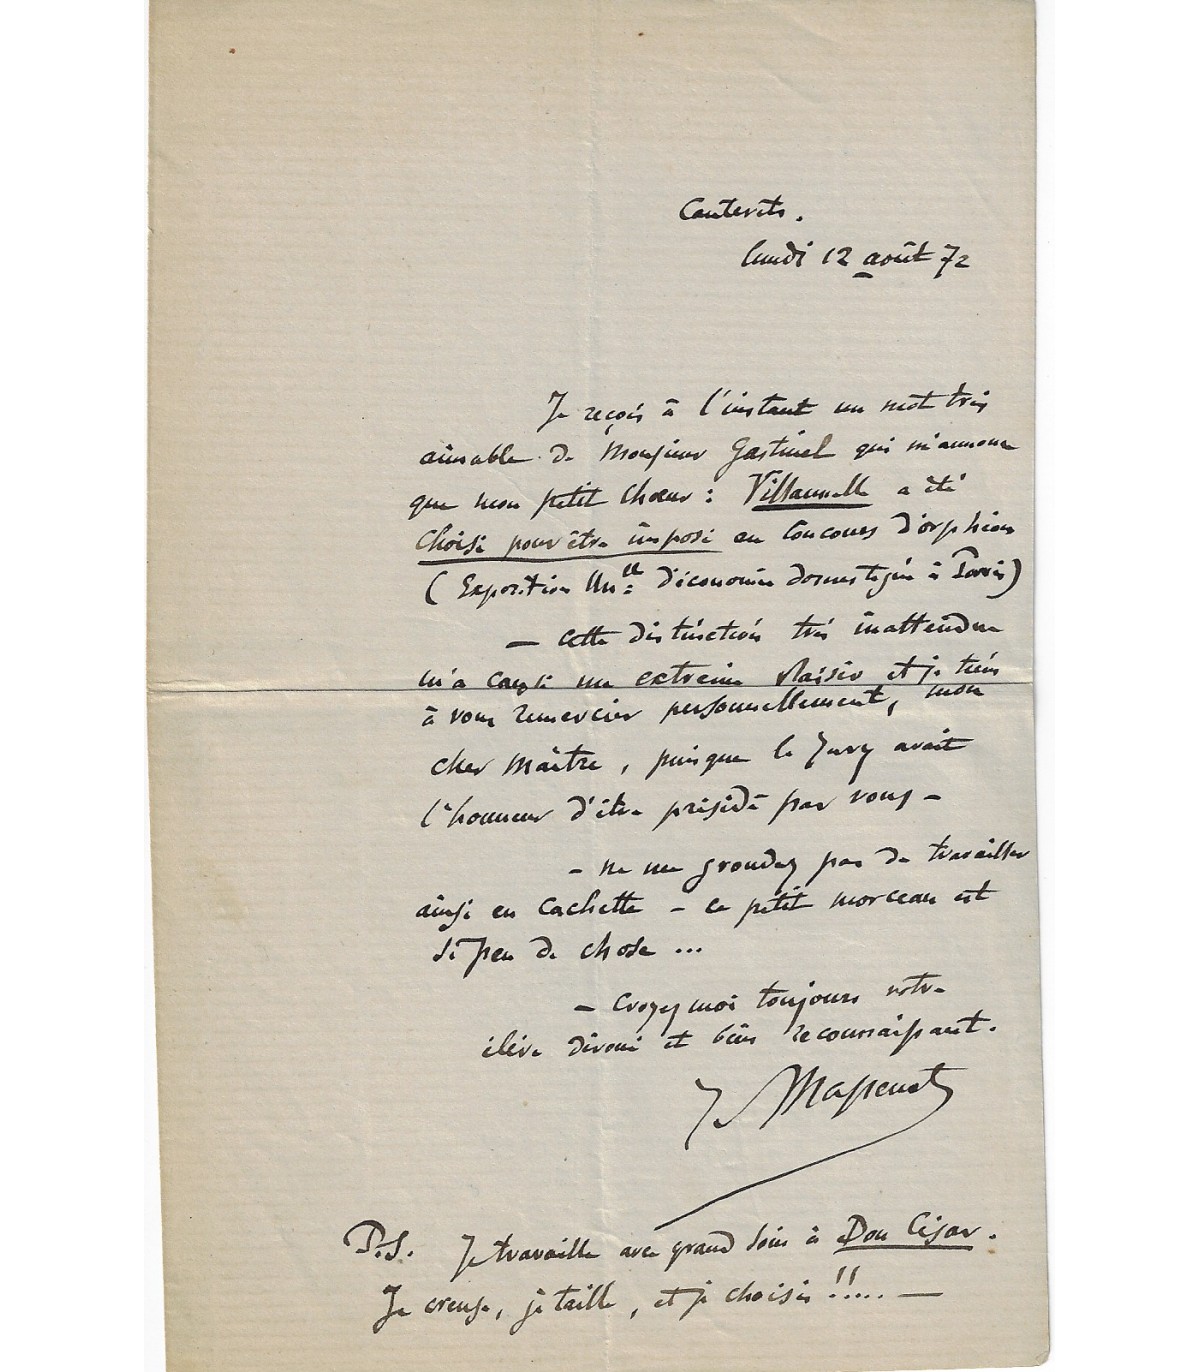 Cauterets.
lundi 12 août 72
Je reçois à l'instant un mot très
aimable de Monsieur Gastinel qui m'annonce
que mon petit chœur : Villanelle a été
choisi pour être imposé au Concours d'orphéons
(Exposition Un.lle d'économie domestique à Paris)
— cette distinction très inattendue
m'a causé un extrême plaisir et je tiens
à vous remercier personnellement, mon
cher Maître, puisque le Jury avait
l'honneur d'être présidé par vous —
— ne me grondez pas de travailler
ainsi en cachette — ce petit morceau est
si peu de chose ...
— croyez moi toujours votre
élève dévoué et bien reconnaissant.
J. Massenet
P.S. Je travaille avec grand soin à Don César.
Je creuse, je taille, et je choisis !!..... —